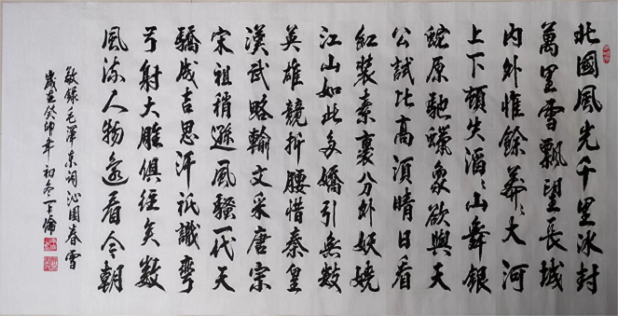 北國風光千里冰封
萬里雪飄望長城
内外惟餘莽〻大河
上下頓失滔〻山舞銀
蛇原馳蠟象欲與天
公試比高須晴日看
紅裝素裹分外妖嬈
江山如此多嬌引無數
英雄競折腰惜秦皇
漢武略輸文采唐宗
宋祖稍遜風騷一代天
驕成吉思汗祇識彎
弓射大雕俱往矣數
風流人物還看今朝
敬錄毛澤東詞沁園春雪
歲在癸卯年初冬